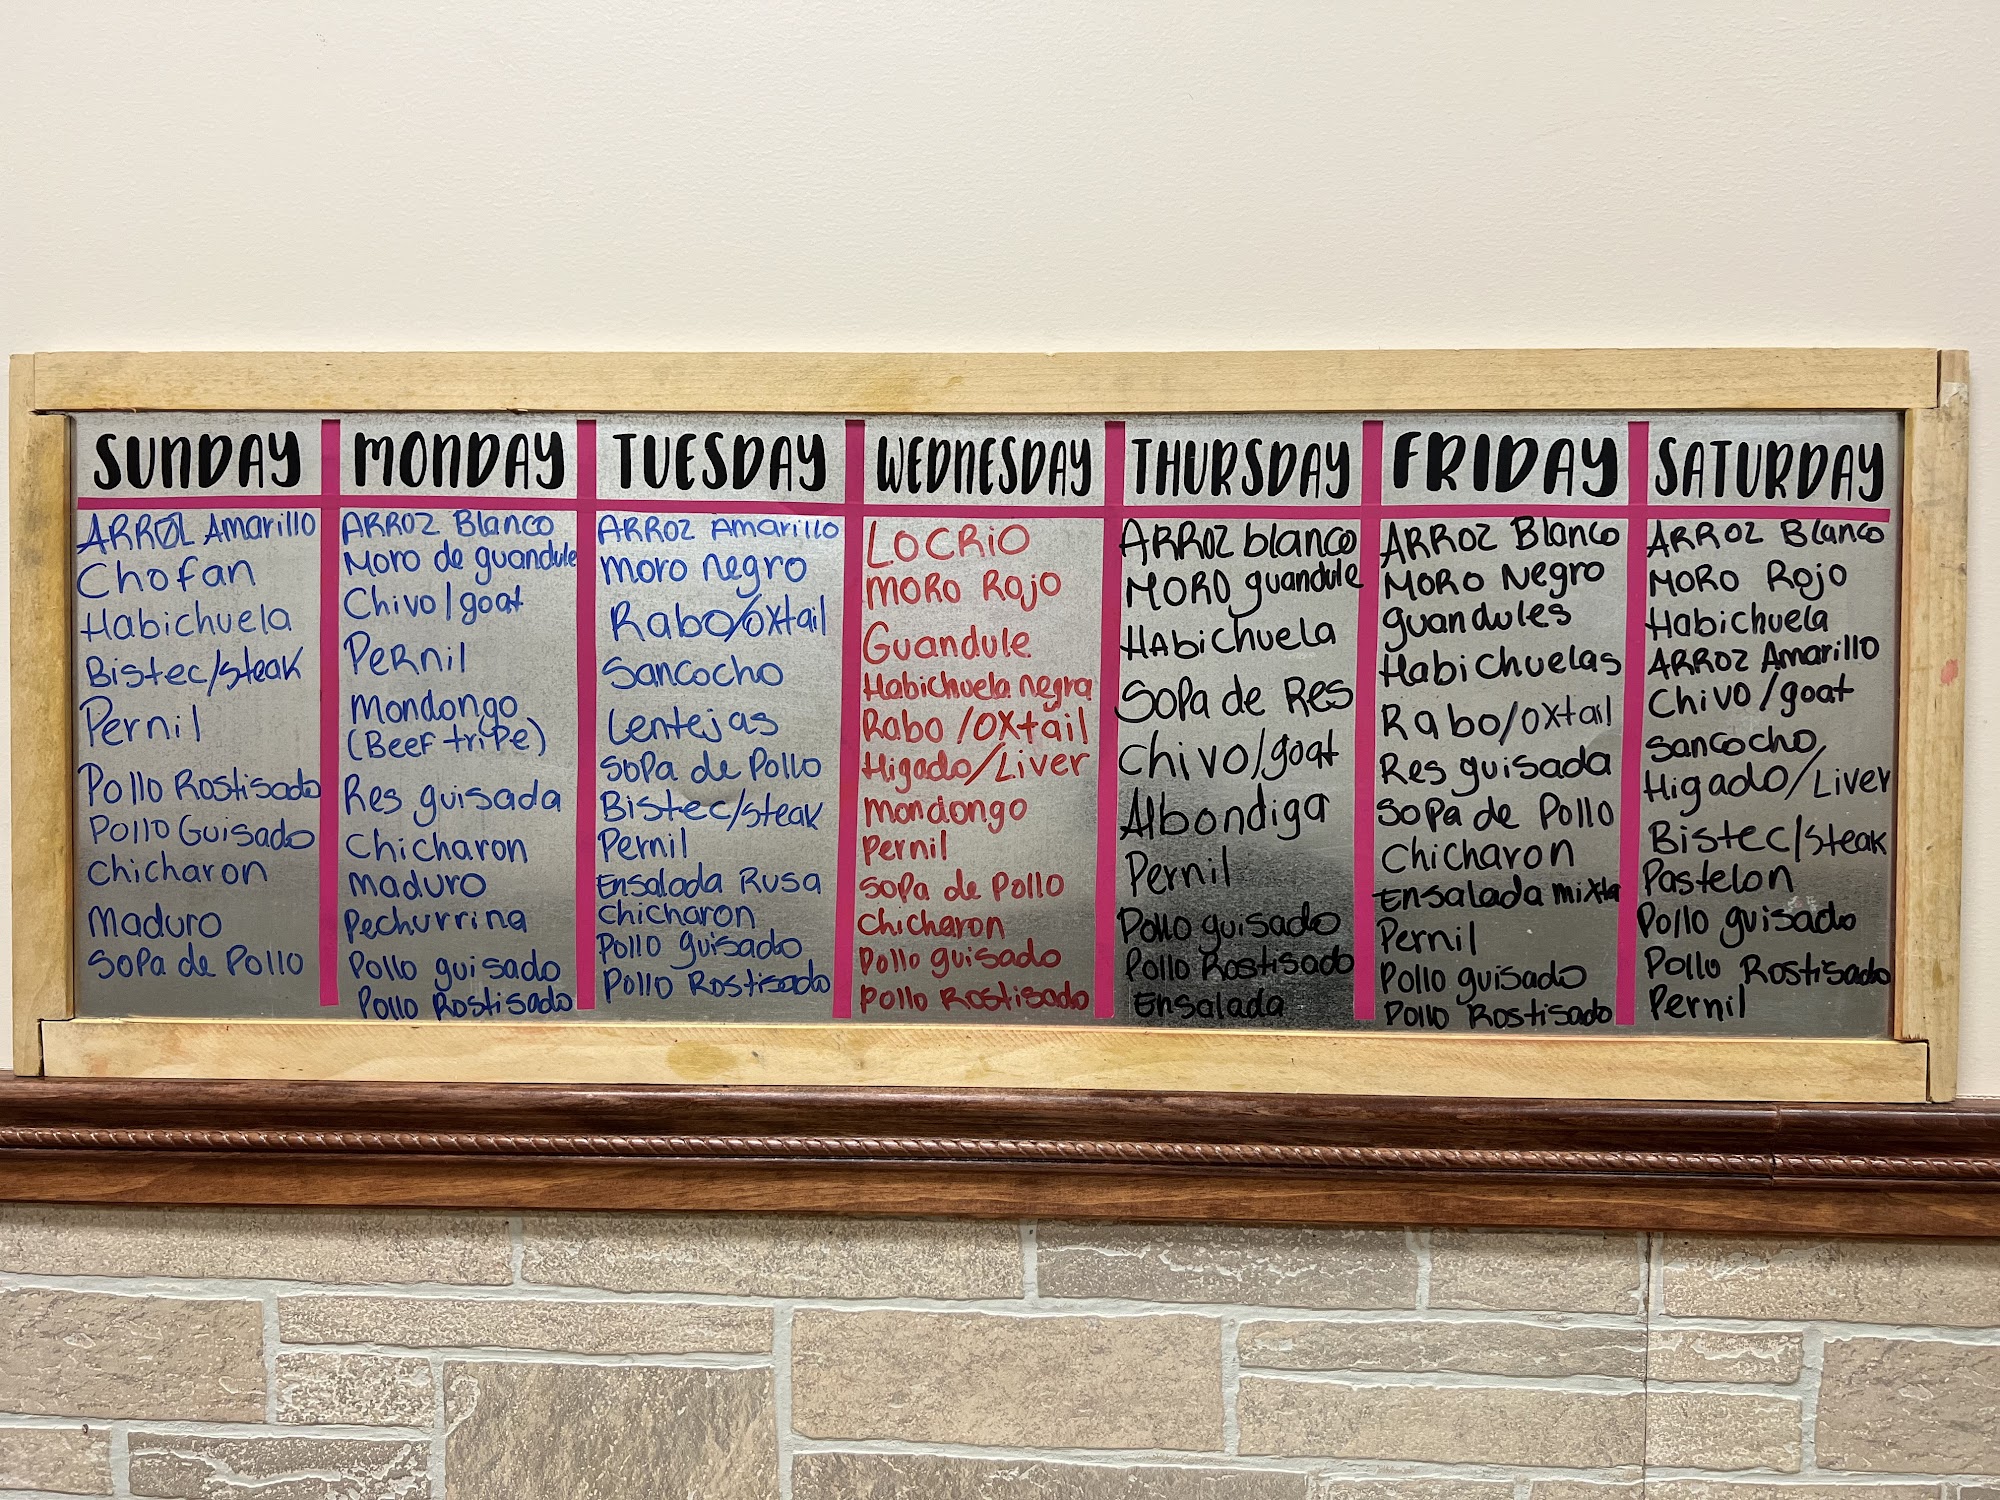 SUNDAY
ARROZ Amarillo
Chofan
Habichuela
Bistec/steak
Pernil
Pollo Rostisado
Pollo Guisado
Chicharon
Maduro
Sopa de Pollo
MONDAY
ARROZ Blanco
Moro de guandule
Chivo/goat
Pernil
Mondongo
(Beef tripe)
Res guisada
Chicharon
Maduro
Pechurrina
Pollo guisado
Pollo Rostisado
TUESDAY
ARROZ Amarillo
Moro negro
Rabo/oxtail
Sancocho
Lentejas
Sopa de Pollo
Bistec/steak
Pernil
Ensalada Rusa
Chicharon
Pollo guisado
Pollo Rostisado
WEDNESDAY
LOCRIO
MORO ROJO
Guandule
Habichuela negra
Rabo/oxtail
Higado/Liver
Mondongo
Pernil
Sopa de Pollo
Chicharon
Pollo guisado
Pollo Rostisado
THURSDAY
ARROZ blanco
MORO guandule
HAbichuela
Sopa de Res
Chivo/goat
Albondiga
Pernil
Pollo guisado
Pollo Rostisado
Ensalada
FRIDAY
ARROZ Blanco
MORO Negro
guandules
Habichuelas
Rabo/oxtail
Res guisada
Sopa de Pollo
Chicharon
Ensalada mixta
Pernil
Pollo guisado
Pollo Rostisado
SATURDAY
ARROZ Blanco
MORO Rojo
Habichuela
ARROZ Amarillo
Chivo/goat
Sancocho
Higado/Liver
Bistec/steak
Pastelon
Pollo guisado
Pollo Rostisado
Pernil